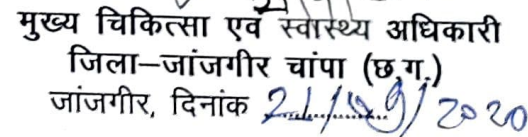 मुख्य चिकित्सा एवं स्वास्थ्य अधिकारी
जिला–जांजगीर चांपा (छ.ग.)
जांजगीर, दिनांक 21/09/2020